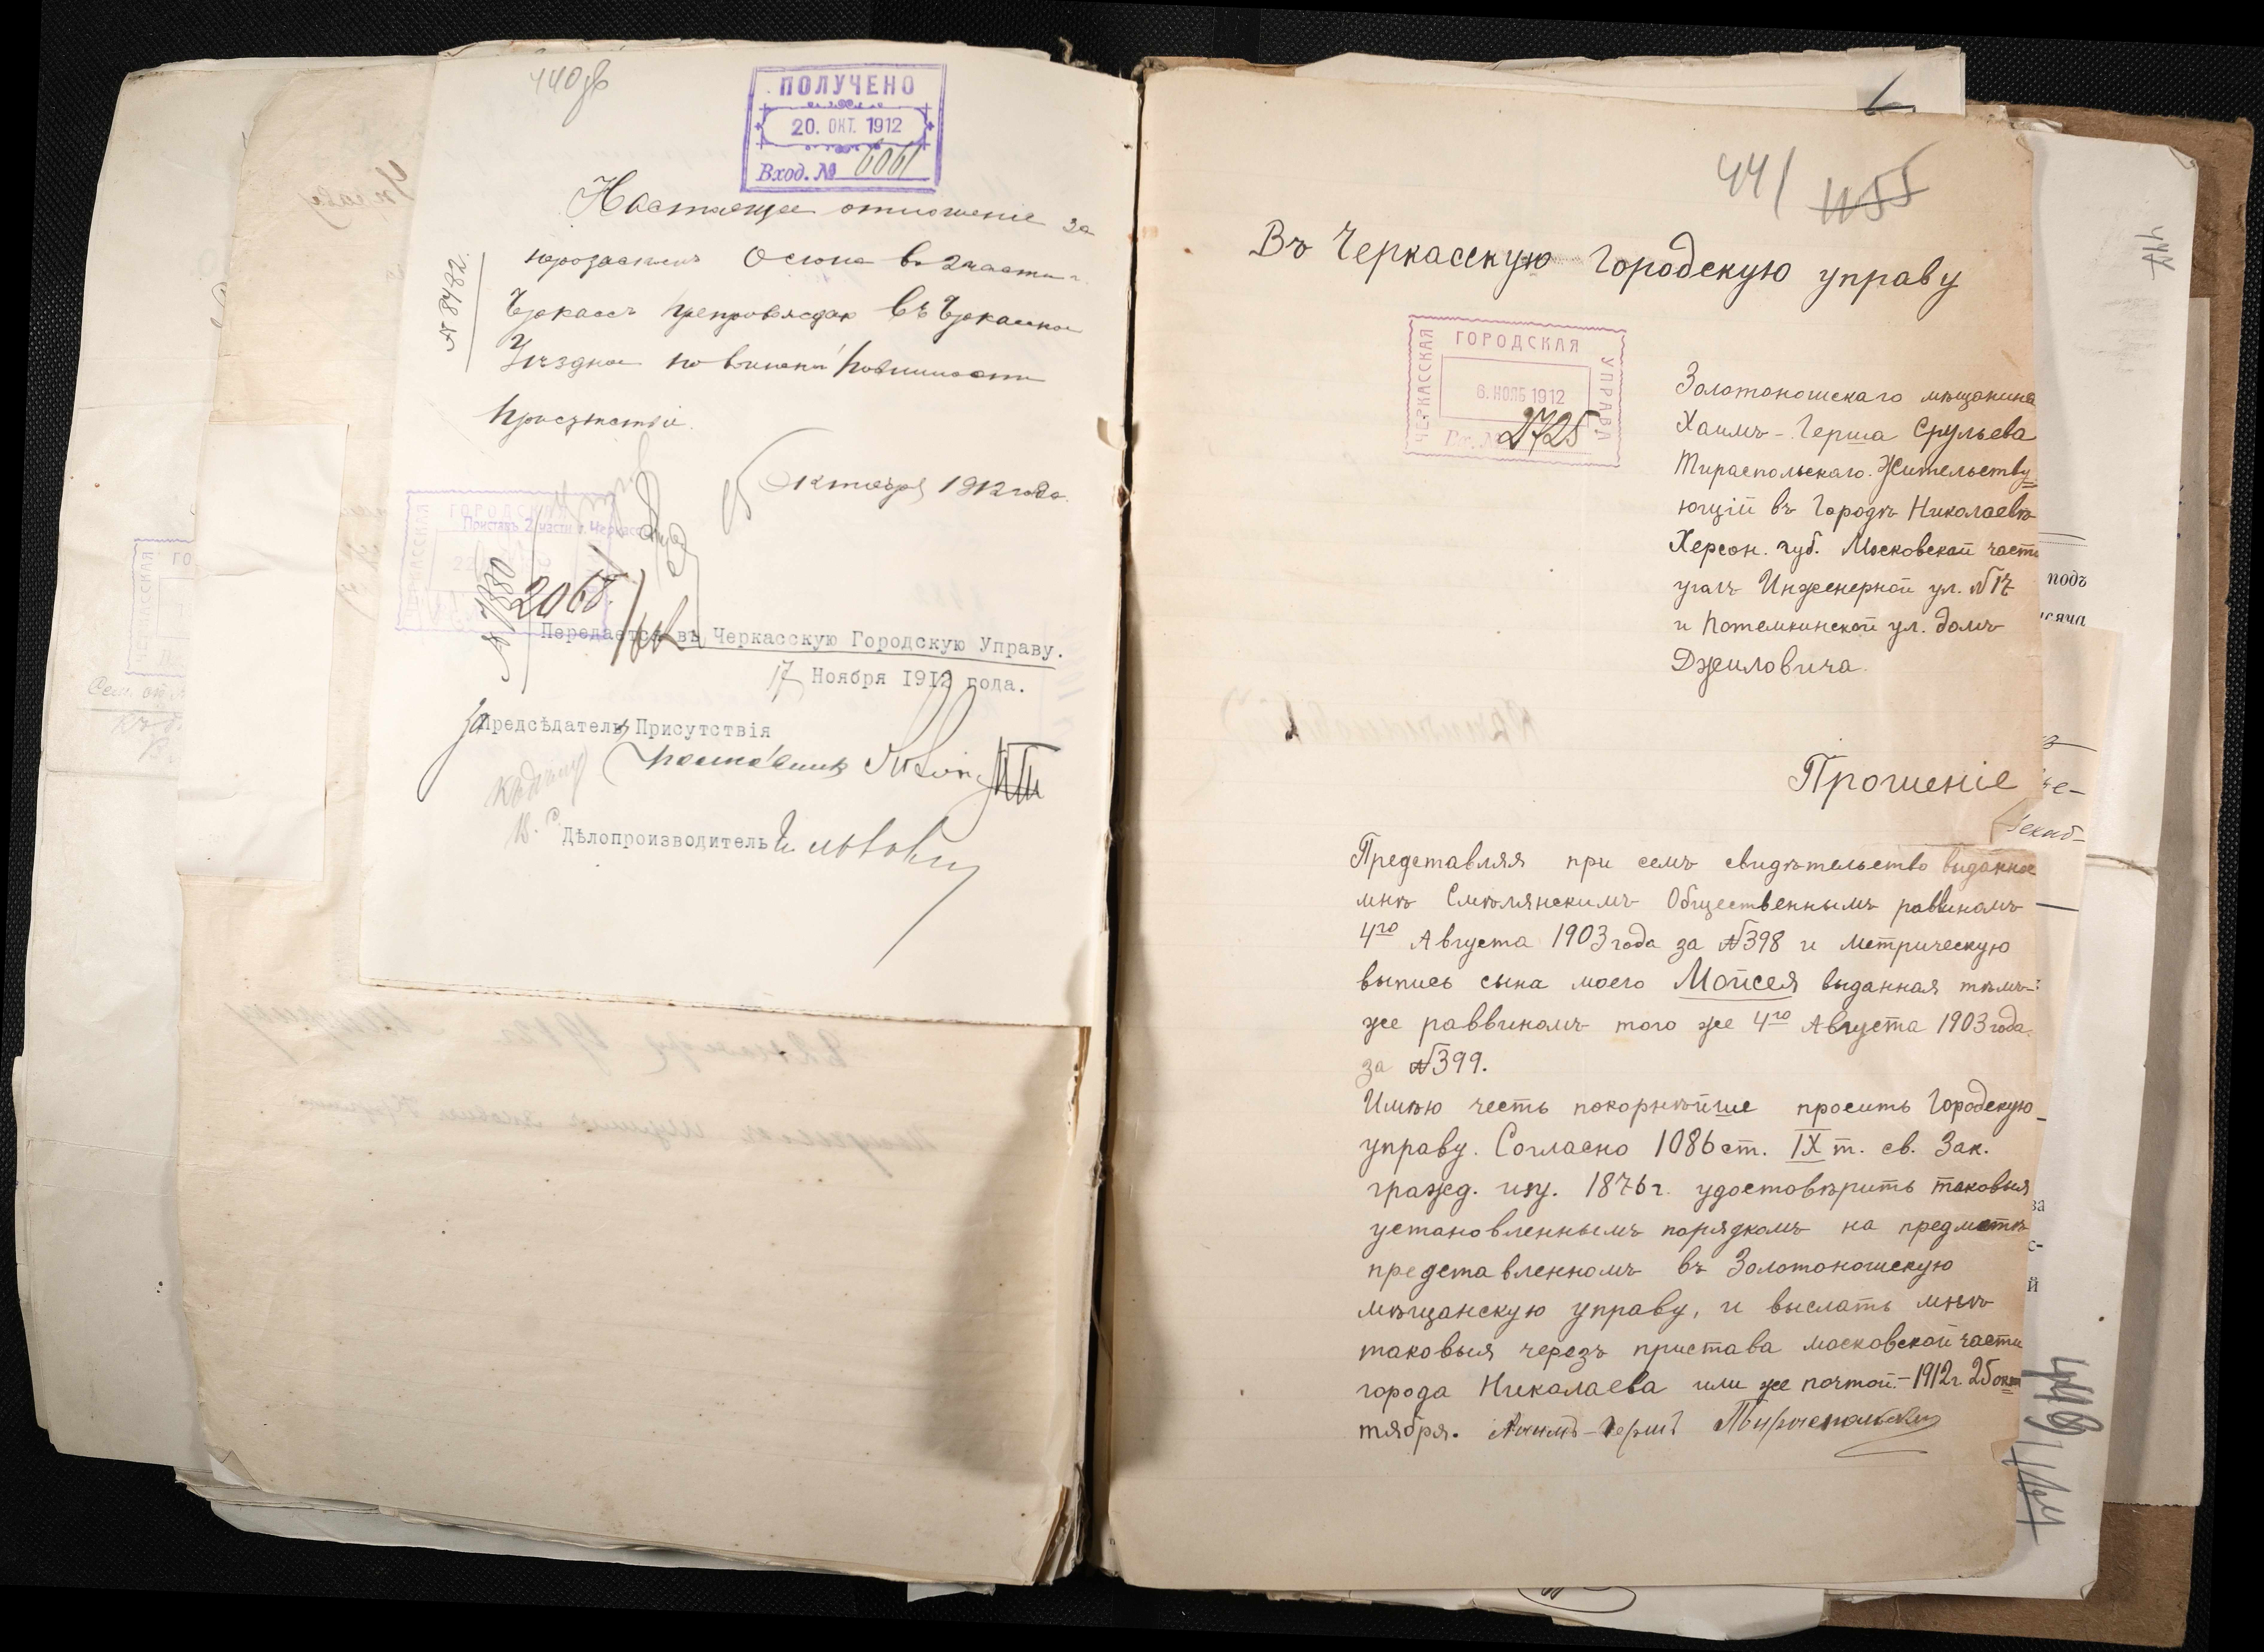 440об
ПОЛУЧЕНО
20. ОКТ. 1912
Вход. № 6061
Настоящее отношение за
№ 8482.
въ 2 части
Черкассъ препровождаю въ Черкасское
Уѣздное по воинской повинности
Присутствіе.
Октября 1912 года.
ЧЕРКАССКАЯ ГОРОДСКАЯ
Приставъ 2 части г. Черкассъ
2068.
№ 7880
Передается въ Черкасскую Городскую Управу.
17 Ноября 1912 года.
За Предсѣдатель Присутствія
Дѣлопроизводитель
441 1155
Въ Черкасскую Городскую управу
ЧЕРКАССКАЯ ГОРОДСКАЯ УПРАВА
6. НОЯБ 1912
Вх. № 2725
Золотоношскаго мѣщанина
Хаимъ-Герша Срульева
Тираспольскаго. Жительству
ющій въ Городѣ Николаевѣ
Херсон. губ. Московской части
уголъ Инженерной ул. №17
и Потемкинской ул. домъ
Джиловича.
Прошеніе
Представляя при семъ свидѣтельство выданное
мнѣ Смѣлянскимъ Общественнымъ раввиномъ
4го Августа 1903 года за №398 и метрическую
выпись сына моего Мойсея выданная тѣмъ-
же раввиномъ того же 4го Августа 1903 года.
за №399.
Имѣю честь покорнѣйше просить Городскую
управу. Согласно 1086 ст. IX т. св. Зак.
гражд. изд. 1876 г. удостовѣрить таковыя
установленнымъ порядкомъ на предметъ
представленномъ въ Золотоношскую
мѣщанскую управу, и выслать мнѣ
таковыя черезъ пристава московской части
города Николаева или же почтой. - 1912 г. 25 ок
тября. Хаимъ-Гершъ Тираспольскій
подъ